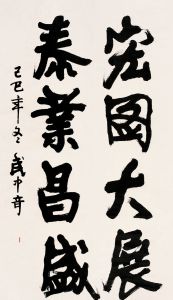 宏图大展
泰業昌盛
己巳年冬武中奇